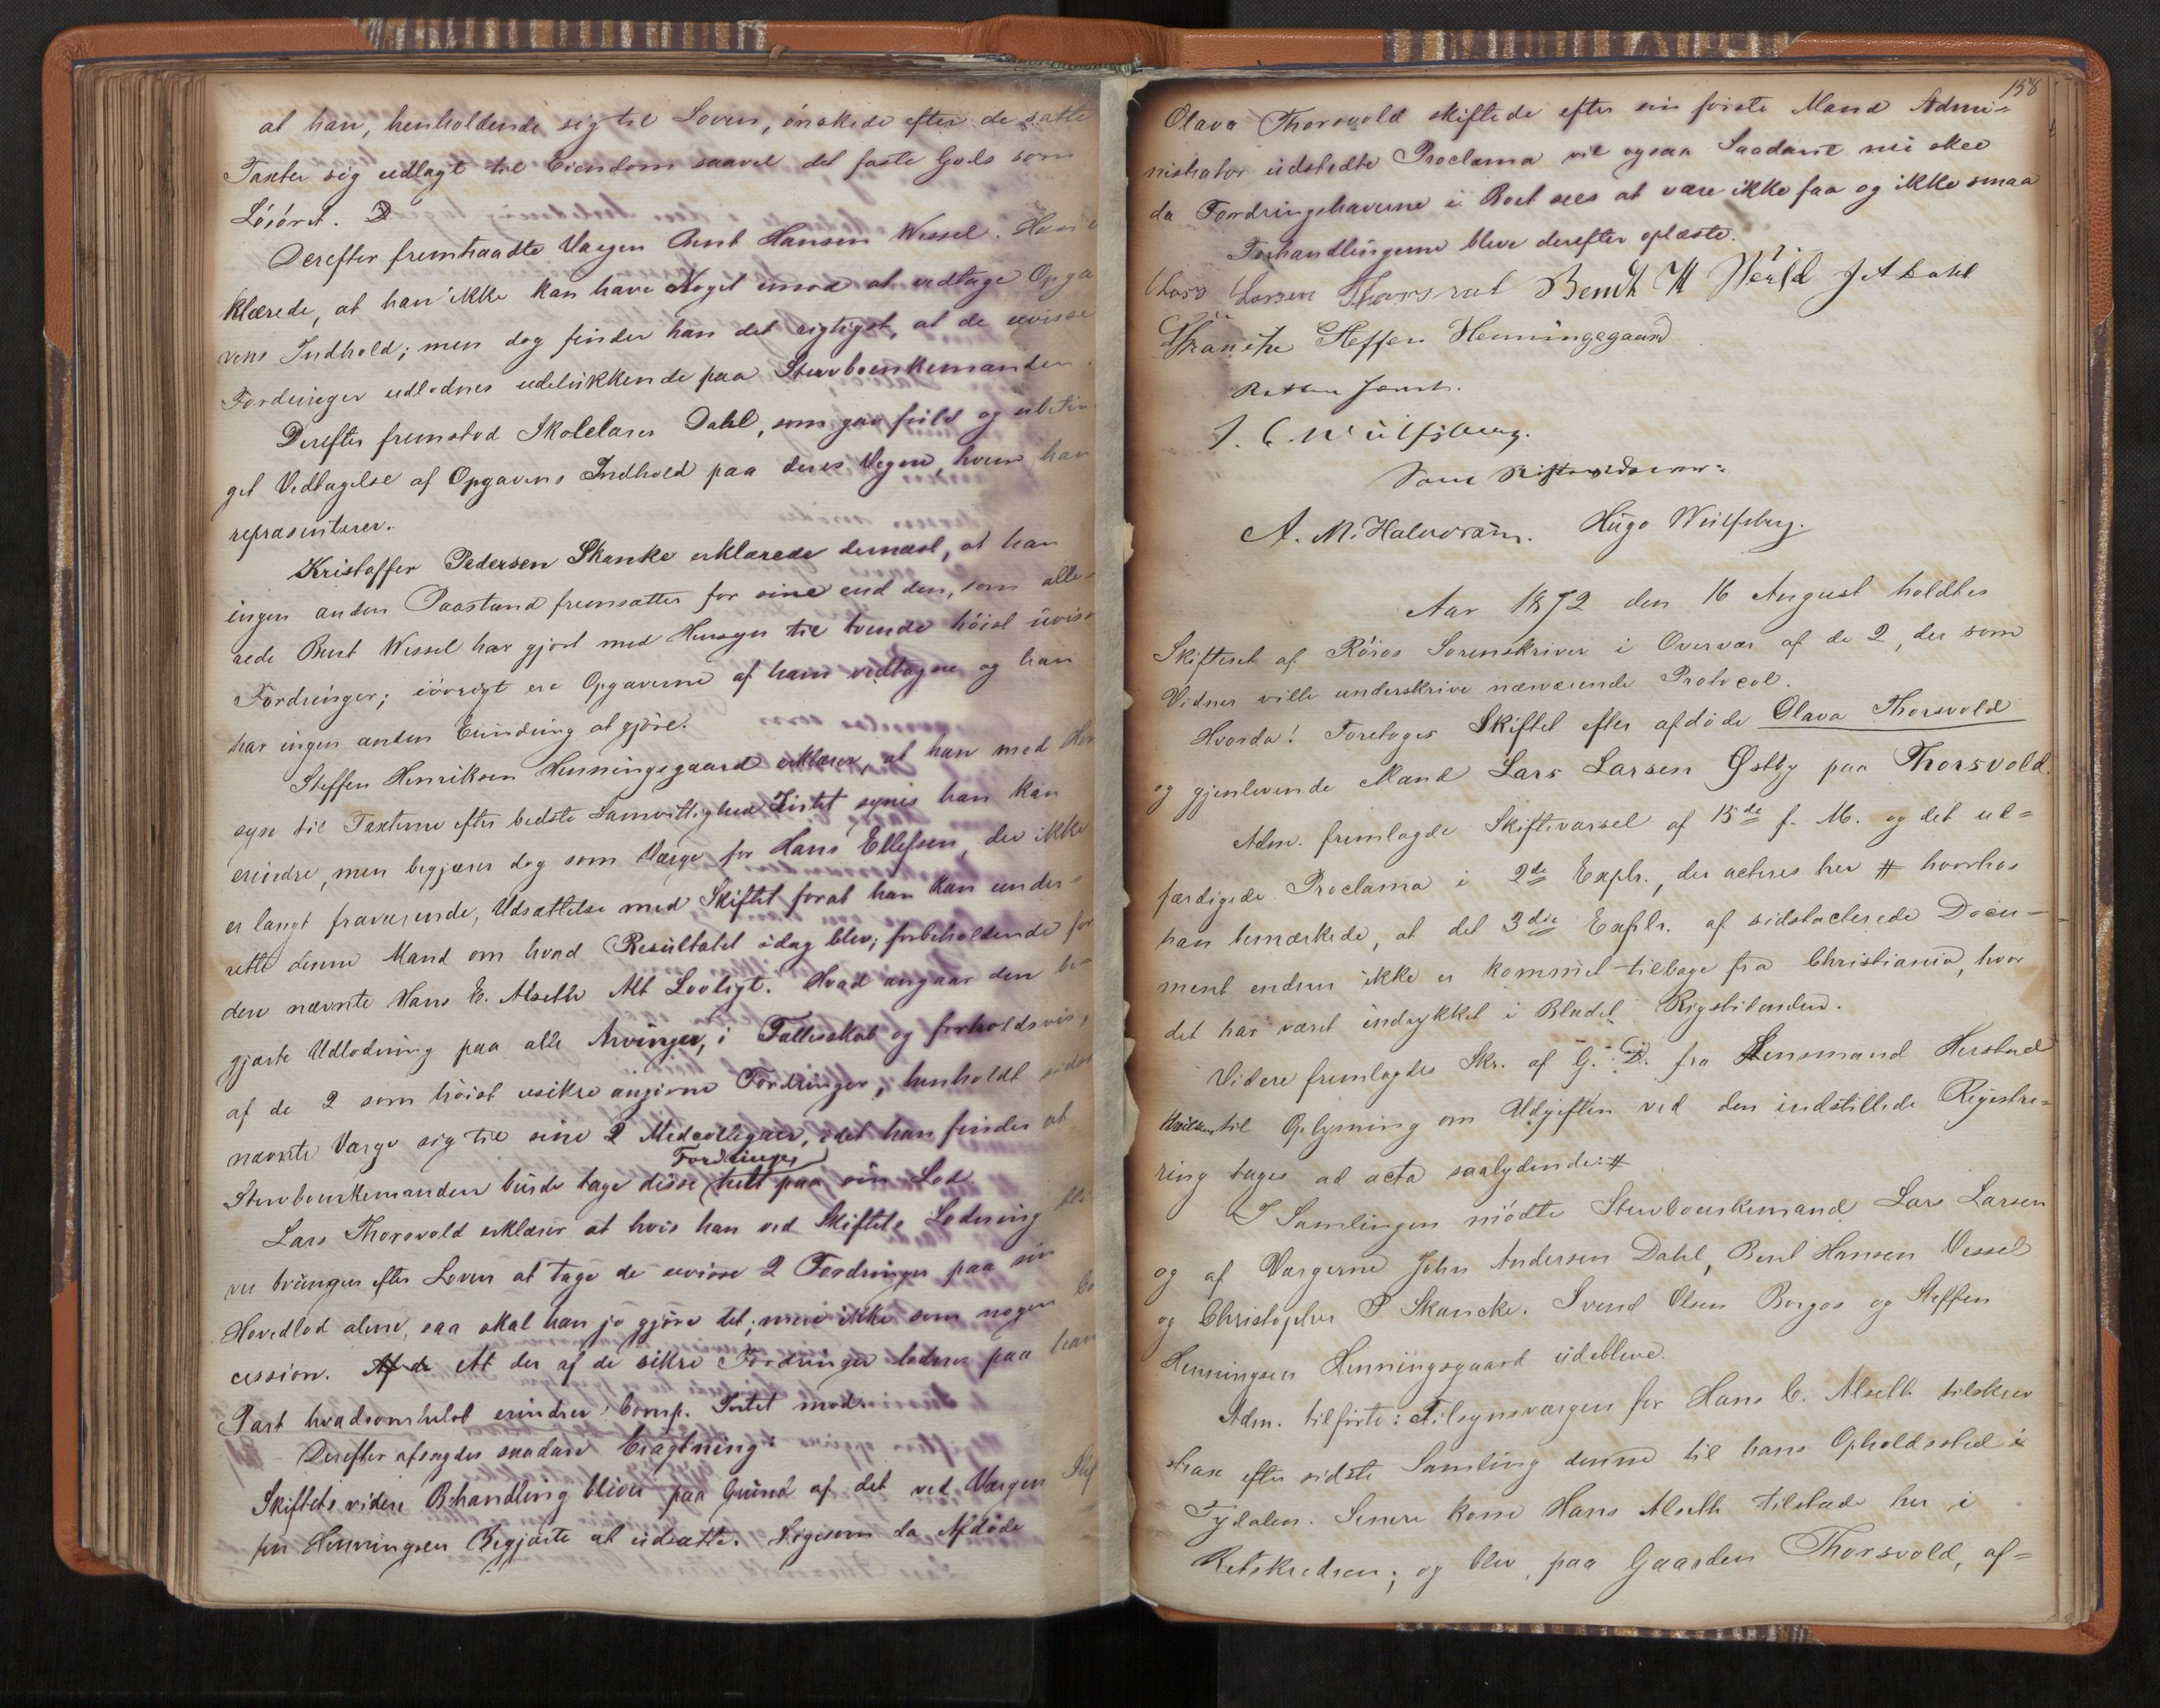 at han, henholdende sig til Loven, ønskede efter de satte
Taxter sig udlagt til Eiendom saavel det faste Gods som
Løsøret.
Derefter fremtraadte Værgen Bent Hansen Wessel. Han
klærede, at han ikke kan have Noget imod at vedtage Opga
vens Indhold; men dog finder han det rigtigst, at de uvisse
Fordringer udlodnes udelukkende paa Stervboenkemanden.
Derefter fremstod Skolelærer Dahl, som gav fuld og ubetin
get Vedtagelse af Opgavens Indhold paa deres Vegne, hvem han
repræsenterer.
Kristoffer Pedersen Skanke erklærede dernæst, at han
ingen anden Paastand fremsætter for sine end den, som alle-
rede Bent Wessel har gjort med Hensyn til tvende høist uvisse
Fordringer; iøvrigt ere Opgaverne af ham vedtagne og han
har ingen anden Erindring at gjøre.
Steffen Henriksen Henningsgaard erklærer, at han med Hen
syn til Taxterne efter bedste Samvittighed Intet synes han kan
erindre, men begjærer dog som Værge for Hans Ellefsen, der ikke
er langt fraværende, Udsættelse med Skiftet forat han kan under-
rette denne Mand om hvad Resultatet idag blev; forbeholdende for
den nævnte Hans E. Alseth Alt Lovligt. Hvad angaar den be-
gjærte Udlodning paa alle Arvinger, i Fællesskab og forholdsvis,
af de 2 som høist usikre angivne Fordringer, henholdt sidst
nævnte Værge sig til sine 2 Medcollegaer, idet han finder at
Stervboenkemanden burde tage disse Fordringer helt paa sin Lod.
Lars Thorsvold erklærer at hvis han ved Skiftets Lodning bli
ver tvungen efter Loven at tage de uvisse 2 Fordringer paa sin
Hovedlod alene, saa skal han jo gjøre det; men ikke som nogen Con
cession. Af de At der af de sikre Fordringer lodnes paa han
Part hvadsomhelst erindrer Comp. Intet mod.
Derefter afsagdes saadan Eragtning:
Skiftets videre Behandling bliver paa Grund af det ved Værgen Stef
fen Henningsen Begjærte at udsætte. Ligesom da Afdøde
158
Olava Thorsvold skiftede efter sin første Mand Admi-
nistrator udstedte Proclama vil ogsaa Saadant nu skee
da Fordringshaverne i Boet sees at være ikke faa og ikke smaa
Forhandlingerne bleve derefter oplæste.
Lars Larsen Thorsvol Bendt H J A Dahl
Steffen Henningsgaard
J. C. Wulfsberg.
Som Skiftevidner:
A. M. Halvorsen. Hugo Wulfsberg.
Aar 1872 den 16 August holdtes
Skifteret af Røros Sorenskriver i Overvær af de 2, der som
Vidner ville underskrive nærværende Protocol.
Hvorda! Foretoges Skiftet efter afdøde Olava Thorsvold
og gjenlevende Mand Lars Larsen Østby paa Thorsvold.
Adm. fremlagde Skiftevarsel af 15de f. M. og det ud-
færdigede Proclama i 2de Explr., der acteres her # hvorhos
han bemærkede, at det 3die Explr. af sidstacterede Docu-
ment endnu ikke er kommet tilbage fra Christiania, hvor
det har været indrykket i Bladet Rigstidenden.
Videre fremlagdes Skr. af G. D. fra Lensmand Herstad
hvilken til Oplysning om Udgiften ved den indstillede Registre-
ring tages ad acta saalydende: #
I Samlingen mødte Stervboenkemand Lars Larsen
og af Værgerne John Andersen Dahl, Bent Hansen Vessel
og Christopher P Skancke. Svend Olsen Borgos og Steffen
Henningsen Henningsgaard udebleve.
Adm. tilførte: Tilsynsværgen for Hans E. Alseth tilskrev
strax efter sidste Samling denne til hans Opholdssted i
Tydalen. Senere kom Hans Alseth tilstede her i
Retskredsen, og blev, paa Gaarden Thorsvold, af-